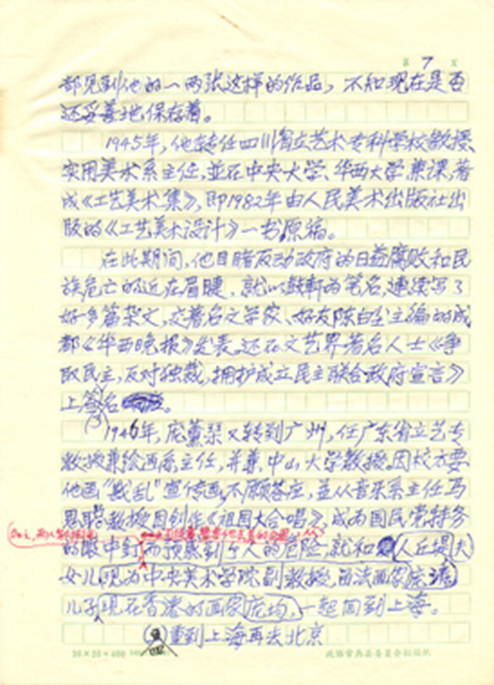 第 7 页
都见到他的一两张这样的作品，不知现在是否
还妥善地保存着。
1945年，他转任四川省立艺术专科学校教授、
实用美术系主任，並在中央大学、华西大学兼课，著
成《工艺美术集》，即1982年由人民美术出版社出
版的《工艺美术设计》一书原稿。
在此期间，他目睹反动政府的日益腐败和民
族危亡的迫在眉睫，就以鼓轩为笔名，连续写了
好多篇杂文，交著名文学家、好友陈白尘主编的成
都《华西晚报》发表，还在文艺界著名人士《争
取民主，反对独裁，拥护成立民主联合政府宣言》
上签名。
1946年，庞薰琹又转到广州，任广东省立艺专
教授兼绘画系主任，并兼中山大学教授。因校方要
他画"戡乱"宣传画，不愿答应，並从音乐系主任马
思聪教授因创作《祖国大合唱》，成为国民党特务
的眼中钉而预感到个人的危险，就和
女儿现为中央美术学院副教授、
儿子现在香港的画家庞均，一起回到上海。
重到上海再去北京
20×20=400
政协常熟县委员会征稿纸